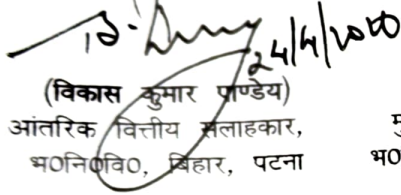 24/4/2020
(विकास कुमार पाण्डेय)
आंतरिक वित्तीय सलाहकार,
भ०नि०वि०, बिहार, पटना